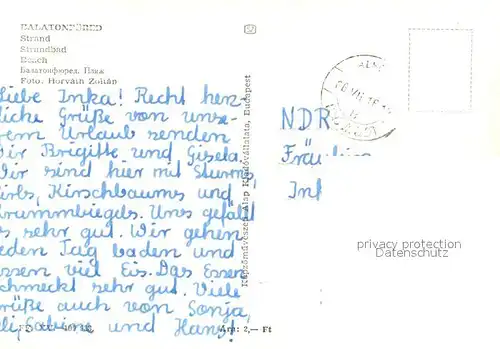 BALATONFÜRED
Strand
Strandbad
Beach
Балатонфюред. Пляж
Foto: Horváth Zoltán
Liebe Inka! Recht herz
liche Grüße von unse-
rem Urlaub senden
Wir Brigitte und Gisela.
Wir sind hier mit Sturms,
Kirschbaums und
Krummbiegels. Uns gefällt
es sehr gut. Wir gehen
jeden Tag baden und
essen viel Eis. Das Essen
schmeckt sehr gut. Viele
Grüße auch von Sonja,
und Hans!
Ára: 2,— Ft
Képzőművészeti Alap Kiadóvállalata, Budapest
NDR
Fräulein
Inf
privacy protection
Datenschutz